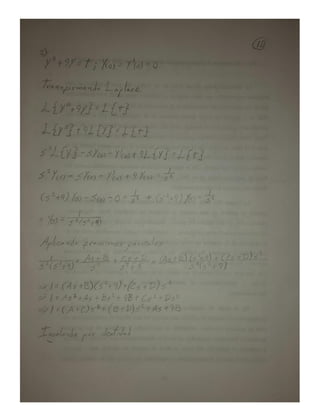 10
a)
y'' + 9y = t ; y(0) = y'(0) = 0
Transformando Laplace
L{y'' + 9y} = L{t}
L{y''} + 9L{y} = L{t}
s²L{y} - sy(0) - y'(0) + 9L{y} = L{t}
s²Y(s) - sy(0) - y'(0) + 9Y(s) = 1/s²
(s²+9)Y(s) - s(0) - 0 = 1/s² → (s²+9)Y(s) = 1/s²
⇒ Y(s) = 1/s²(s²+9)
Aplicando fracciones parciales
1/s²(s²+9) = As+B/s² + Cs+D/s²+9 = (As+B)(s²+9)+(Cs+D)s²/s²(s²+9)
⇒ 1 = (As+B)(s²+9)+(Cs+D)s²
⇒ 1 = As³+9As+Bs²+9B+Cs³+Ds²
⇒ 1 = (A+C)s³+(B+D)s²+9As+9B
Igualando por identidad